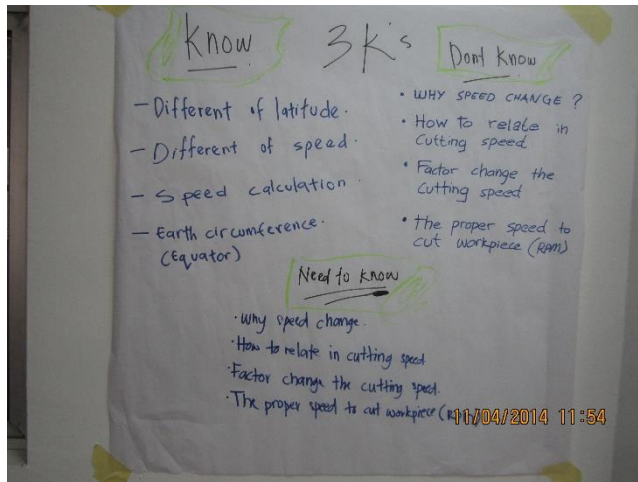 3K's
Know
- Different of latitude.
- Different of speed.
- Speed calculation.
- Earth circumference.
(Equator)
Dont Know
• WHY SPEED CHANGE ?
• How to relate in
cutting speed
• Factor change the
cutting speed
• The proper speed to
cut workpiece (RPM)
Need to know
• Why speed change.
• How to relate in cutting speed
• Factor change the cutting speed.
• The proper speed to cut workpiece (RPM)
11/04/2014 11:54